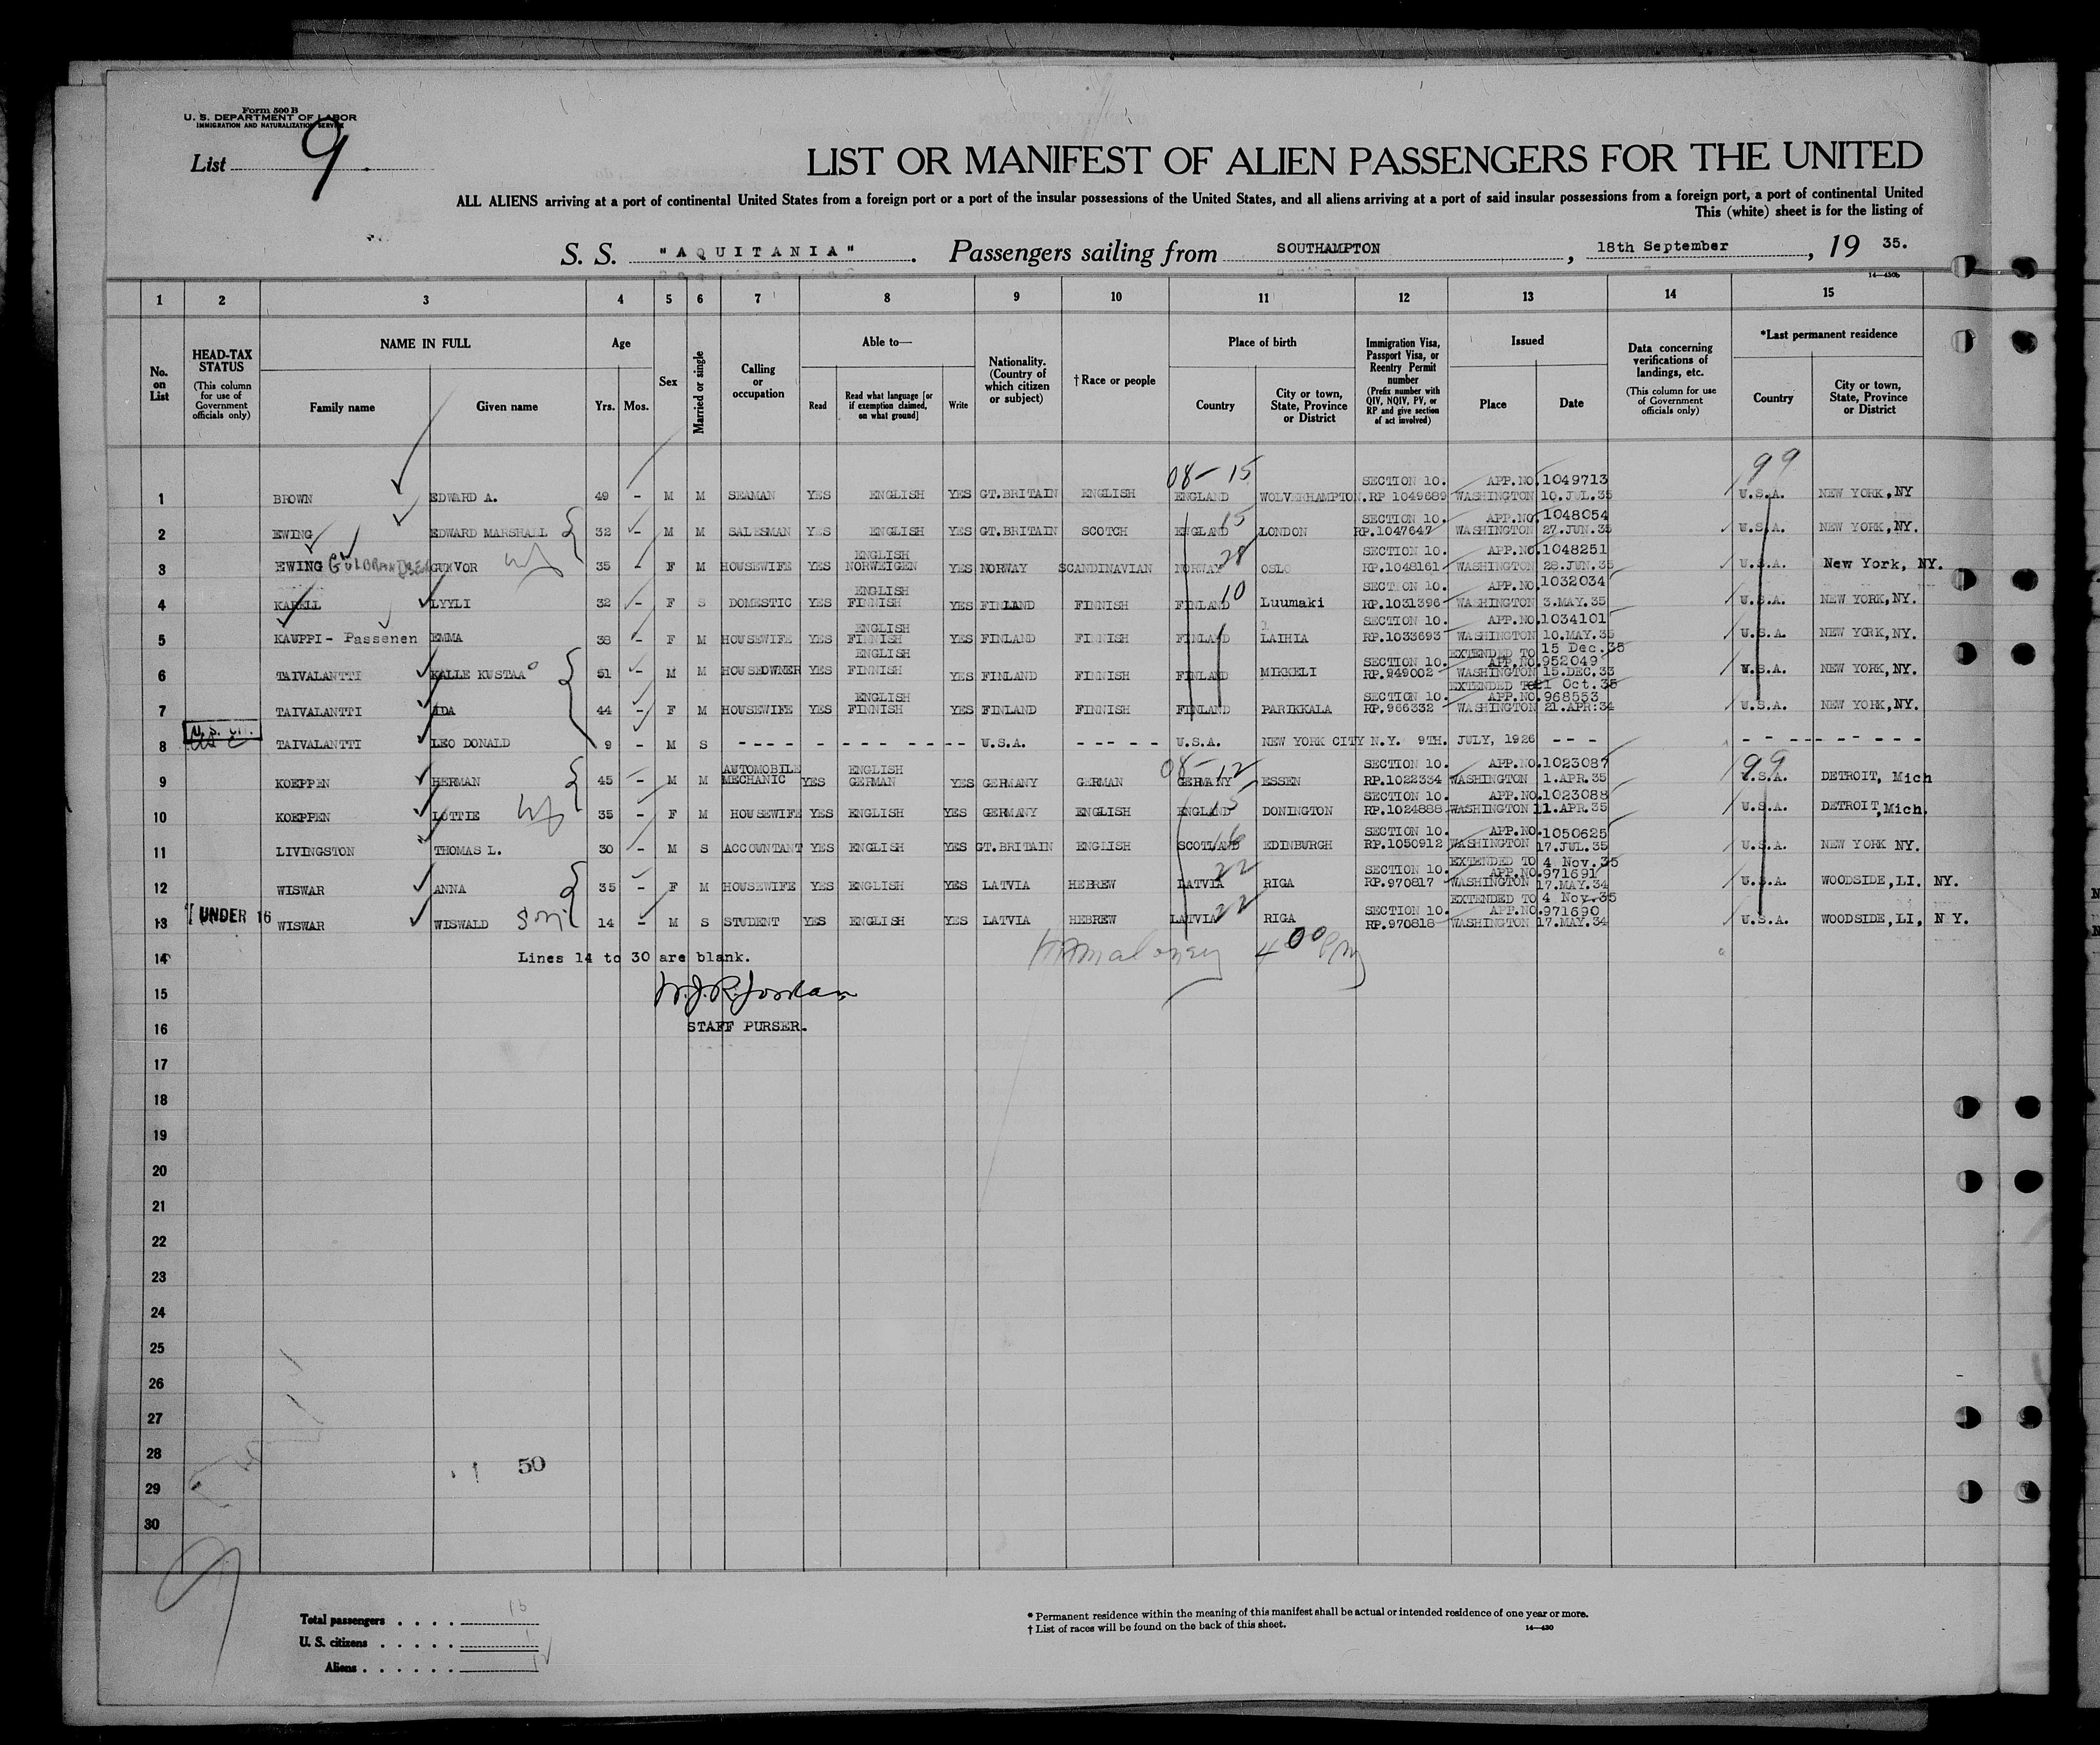 Form 500 B
U. S. DEPARTMENT OF LABOR
IMMIGRATION AND NATURALIZATION SERVICE
List 9
LIST OR MANIFEST OF ALIEN PASSENGERS FOR THE UNITED
ALL ALIENS arriving at a port of continental United States from a foreign port or a port of the insular possessions of the United States, and all aliens arriving at a port of said insular possessions from a foreign port, a port of continental United
This (white) sheet is for the listing of
S. S. "AQUITANIA". Passengers sailing from SOUTHAMPTON, 18th September, 19 35.
14—430b
1 2 3 4 5 6 7 8 9 10 11 12 13 14 15
No. on List
HEAD-TAX STATUS (This column for use of Government officials only)
NAME IN FULL Family name Given name
Age Yrs. Mos.
Sex
Married or single
Calling or occupation
Able to— Read Read what language [or if exemption claimed, on what ground] Write
Nationality. (Country of which citizen or subject)
† Race or people
Place of birth Country City or town, State, Province or District
Immigration Visa, Passport Visa, or Reentry Permit number (Prefix number with QIV, NQIV, PV, or RP and give section of act involved)
Issued Place Date
Data concerning verifications of landings, etc. (This column for use of Government officials only)
*Last permanent residence Country City or town, State, Province or District
08- 15 99
SECTION 10. APP.NO. 1049713
1 BROWN EDWARD A. 49 - M M SEAMAN YES ENGLISH YES GT.BRITAIN ENGLISH ENGLAND WOLVERHAMPTON. RP 1049689 WASHINGTON 10.JUL.35 U.S.A. NEW YORK, NY
15 SECTION 10. APP.NO. 1048054
2 EWING EDWARD MARSHALL 32 - M M SALESMAN YES ENGLISH YES GT.BRITAIN SCOTCH ENGLAND LONDON RP.1047647 WASHINGTON 27.JUN.35 U.S.A. NEW YORK, NY.
ENGLISH 28 SECTION 10. APP.NO. 1048251
3 EWING GULBRANDSEN GUNVOR wf 35 - F M HOUSEWIFE YES NORWEIGEN YES NORWAY SCANDINAVIAN NORWAY OSLO RP.1048161 WASHINGTON 28.JUN.35 U.S.A. New York, NY.
ENGLISH 10 SECTION 10. APP.NO. 1032034
4 KARELL LYYLI 32 - F S DOMESTIC YES FINNISH YES FINLAND FINNISH FINLAND Luumaki RP.1031396 WASHINGTON 3.MAY.35 U.S.A. NEW YORK, NY.
ENGLISH SECTION 10. APP.NO. 1034101
5 KAUPPI - Passenen EMMA 38 - F M HOUSEWIFE YES FINNISH YES FINLAND FINNISH FINLAND LAIHIA RP.1033693 WASHINGTON 10.MAY.35 U.S.A. NEW YORK, NY.
EXTENDED TO 15 Dec. 35
ENGLISH SECTION 10. APP.NO. 952049
6 TAIVALANTTI KALLE KUSTAA 51 - M M HOUSEOWNER YES FINNISH YES FINLAND FINNISH FINLAND MIKKELI RP.949002 WASHINGTON 15.DEC.33 U.S.A. NEW YORK, NY.
EXTENDED TO 21 Oct. 35
ENGLISH SECTION 10. APP.NO. 968553
7 TAIVALANTTI AIDA 44 - F M HOUSEWIFE YES FINNISH YES FINLAND FINNISH FINLAND PARIKKALA RP.966332 WASHINGTON 21.APR:34 U.S.A. NEW YORK, NY.
U.S. CIT.
8 TAIVALANTTI LEO DONALD 9 - M S - - - - - - - - - - - - U.S.A. - - - - - U.S.A. NEW YORK CITY N.Y. 9TH. JULY, 1926 - - - - - - - - - - - - - -
AUTOMOBILE ENGLISH 08- 12 SECTION 10. APP.NO. 1023087 99
9 KOEPPEN HERMAN 45 - M M MECHANIC YES GERMAN YES GERMANY GERMAN GERMANY ESSEN RP.1022334 WASHINGTON 1.APR.35 U.S.A. DETROIT, Mich
15 SECTION 10. APP.NO. 1023088
10 KOEPPEN LOTTIE wf 35 - F M HOUSEWIFE YES ENGLISH YES GERMANY ENGLISH ENGLAND DONINGTON RP.1024888 WASHINGTON 11.APR.35 U.S.A. DETROIT, Mich.
16 SECTION 10. APP.NO. 1050625
11 LIVINGSTON THOMAS L. 30 - M S ACCOUNTANT YES ENGLISH YES GT.BRITAIN ENGLISH SCOTLAND EDINBURGH RP.1050912 WASHINGTON 17.JUL.35 U.S.A. NEW YORK NY.
EXTENDED TO 4 Nov. 35
22 SECTION 10. APP.NO. 971691
12 WISWAR ANNA 35 - F M HOUSEWIFE YES ENGLISH YES LATVIA HEBREW LATVIA RIGA RP.970817 WASHINGTON 17.MAY.34 U.S.A. WOODSIDE, LI. NY.
EXTENDED TO 4 Nov. 35
22 SECTION 10. APP.NO. 971690
13 UNDER 16 WISWAR WISWALD son 14 - M S STUDENT YES ENGLISH YES LATVIA HEBREW LATVIA RIGA RP.970818 WASHINGTON 17.MAY.34 U.S.A. WOODSIDE, LI, N Y.
14 Lines 14 to 30 are blank. 4 00 PM
15 W.J.R. Jordan
16 STAFF PURSER.
17
18
19
20
21
22
23
24
25
26
27
28
50
29
30
9
Total passengers . . . . 13
U. S. citizens . . . . . 1
Aliens . . . . . . 12
* Permanent residence within the meaning of this manifest shall be actual or intended residence of one year or more.
† List of races will be found on the back of this sheet. 14—430